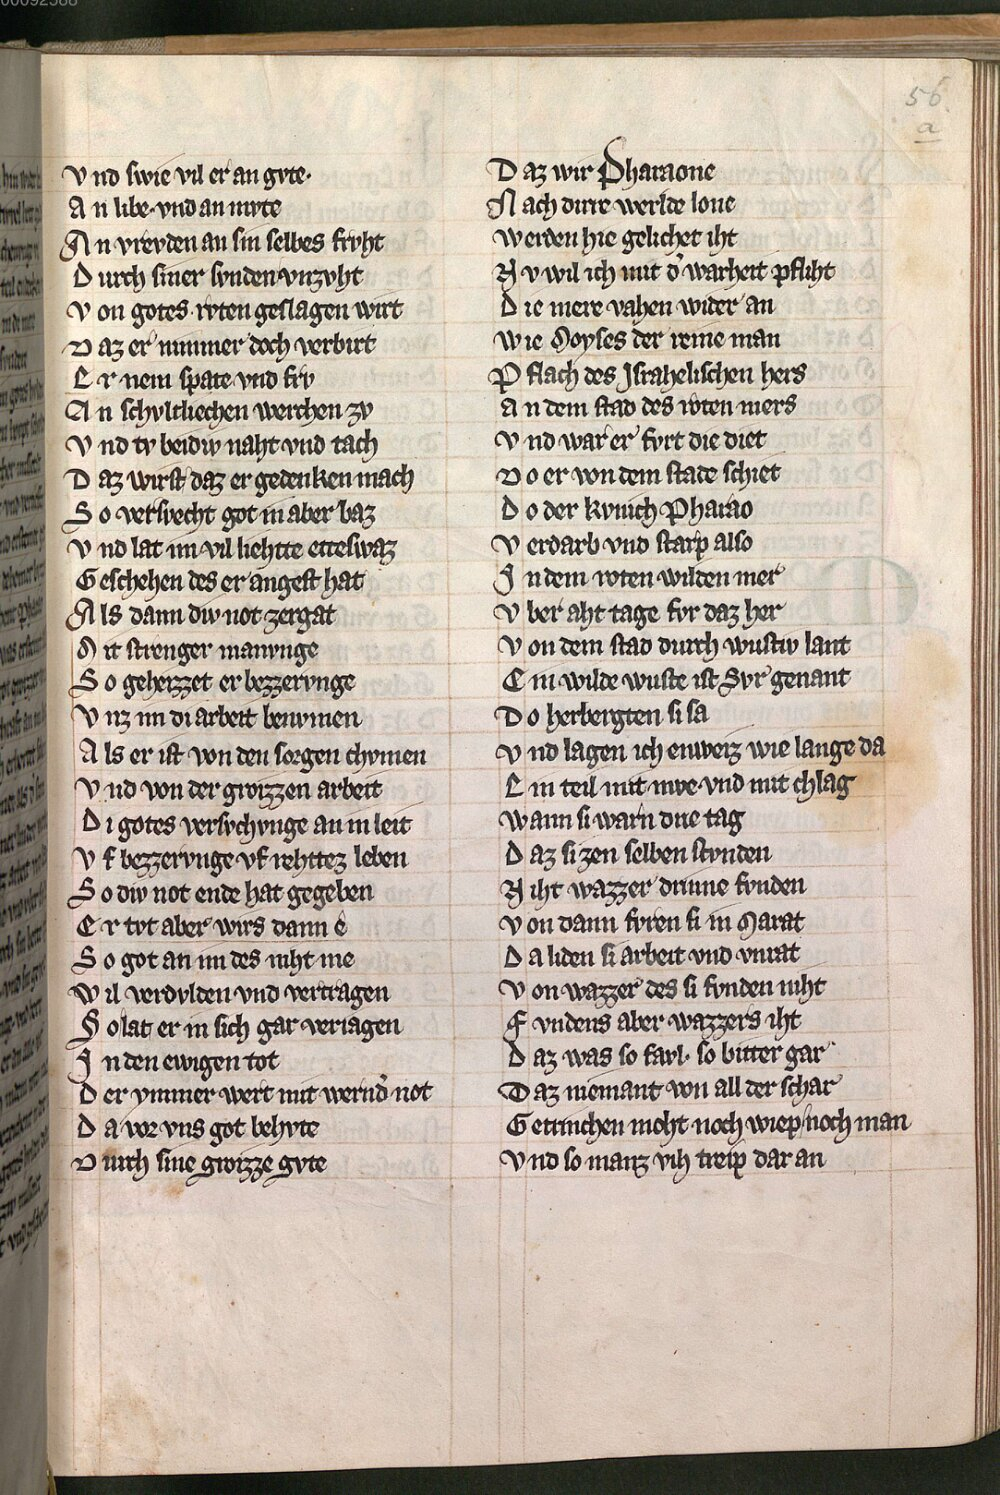 00092588
56
a
Vnd swie vil er an gvte·
An libe·vnd an mvte
An vrevden an sin selbes frvht
Durch siner svnden vnzvht
Von gotes rvten geslagen wirt
Daz er nimmer doch verbirt
Ern em spate vnd frv
An schvltliechen werchen zv
Vnd tv beidiv naht vnd tach
Daz wirst daz er gedenken mach
So versvecht got in aber baz
Vnd lat im vil liehtte etteswaz
Geschehen des er angest hat
Als dann div not zergat
Mit strenger manvnge
So geheizzet er bezzervnge
Vnz im di arbeit benvmen
Als er ist von den sorgen chvmen
Vnd von der groizzen arbeit
Di gotes versvchvnge an in leit
Vf bezzervnge vf rehttez leben
So div not ende hat gegeben
Er tvt aber wirs dann e
So got an im des niht me
Wil verdvlden vnd vertragen
So lat er in sich gar veriagen
In den ewigen tot
Der ymmer wert mit wernd' not
Da vor vns got behvte
Durch sine groizze gvte
Daz wir Pharaone
Nach dirre werlde lone
Werden hie gelichet iht
Nv wil ich mit d' warheit pfliht
Die mere vahen wider an
Wie Moyses der reine man
Pflach des Israhelischen hers
An dem stad des roten mers
Vnd war er fvrt die diet
Do er von dem stade schiet
Do der kvnich Pharao
Verdarb vnd starp also
In dem roten wilden mer
Vber aht tage fvr daz her
Von dem stad durch wustiv lant
Ein wilde wuste ist Svr genant
Do herbergten si sa
Vnd lagen ich enweiz wie lange da
Ein teil mit mve·vnd mit chlag
Wann si warn drie tag
Daz si zen selben stvnden
Niht wazzer drinne fvnden
Von dann fvren si in Marat
Da liden si arbeit vnd vnrat
Von wazzer des si fvnden niht
Fvndens aber wazzers iht
Daz was so favl· so bitter gar
Daz niemant von all der schar
Getrinchen moht noch wiep noch man
Vnd so manz vih treip dar an